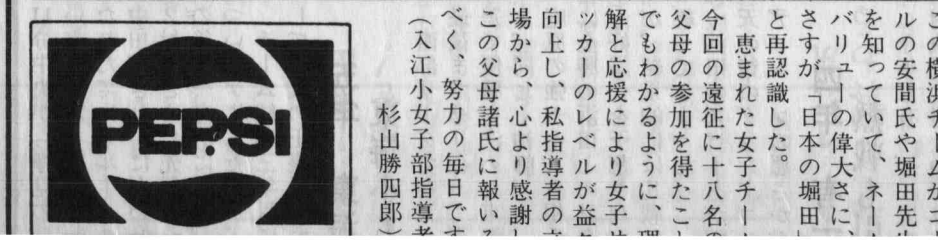 この横浜チームがつ
ルの安間氏や堀田先生
を知っていて、ネーム
バリューの偉大さに、
さすが「日本の堀田」
と再認識した。
恵まれた女子チー
今回の遠征に十八名の
父母の参加を得たこと
でもわかるように、理
解と応援により女子サ
ッカーのレベルが益々
向上し、私指導者の立
場から、心より感謝し
この父母諸氏に報いる
べく、努力の毎日です
(入江小女子部指導者
杉山勝四郎)
PEPSI